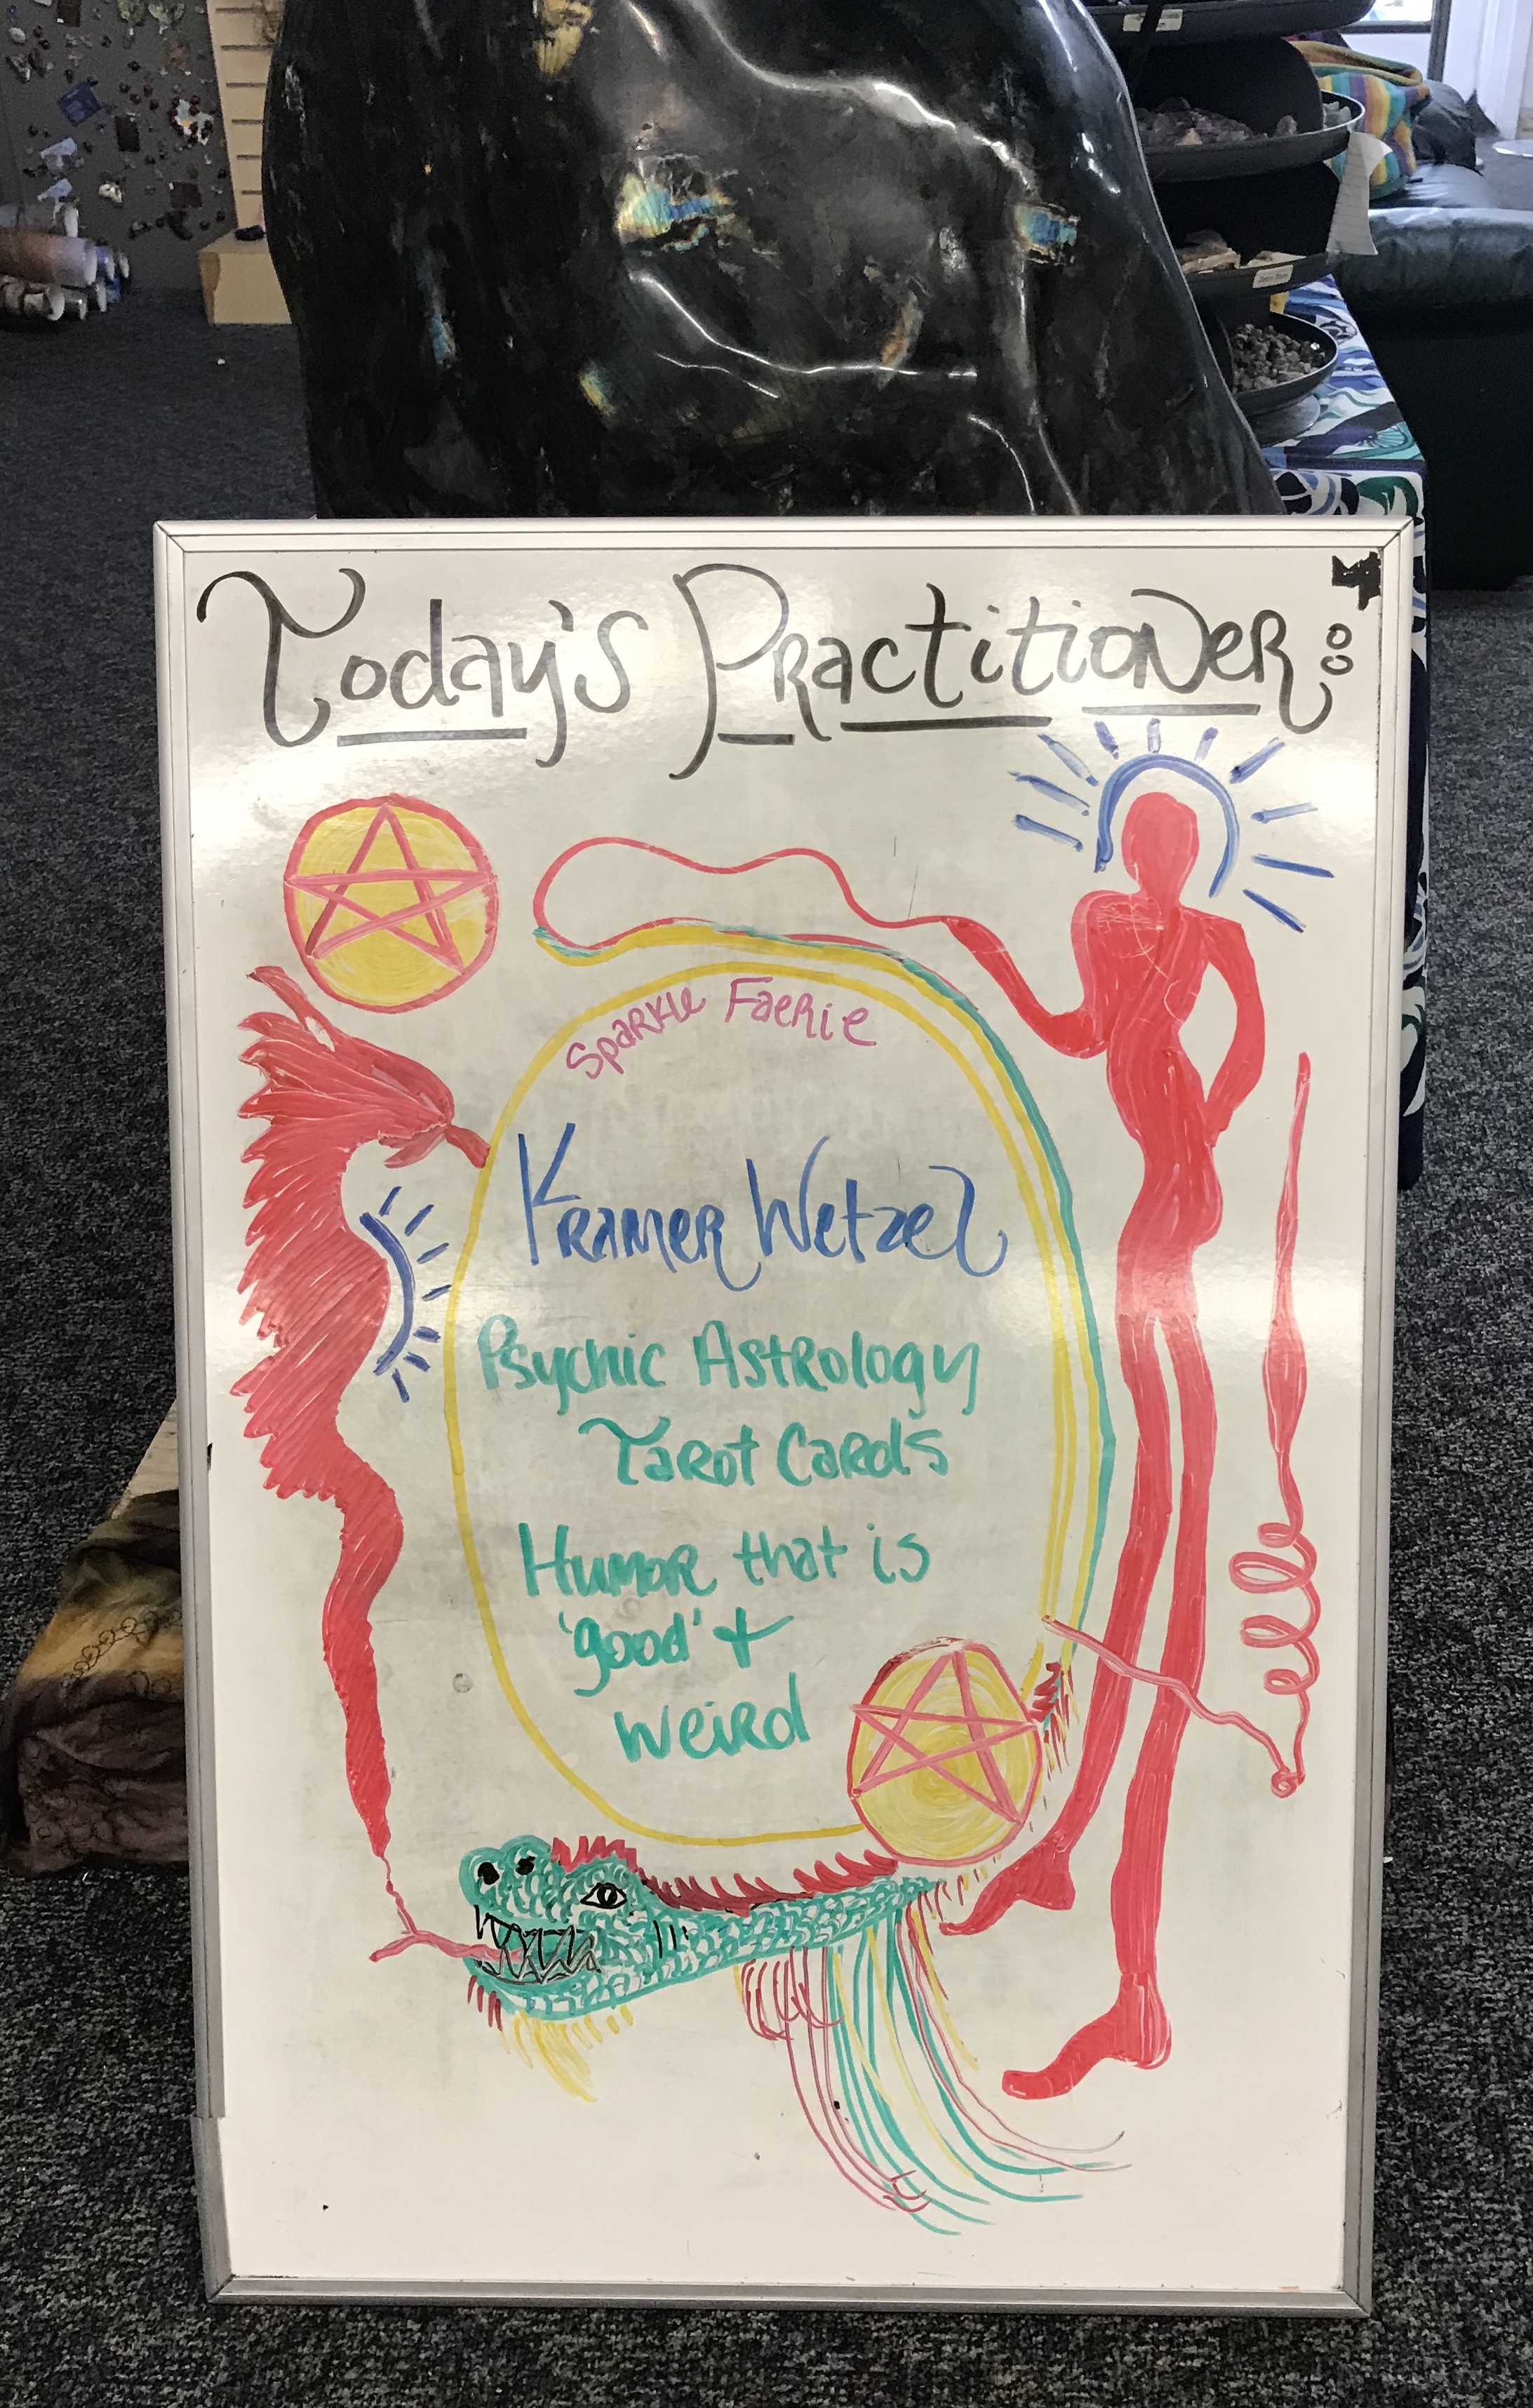 Today's Practitioner:
Sparkle Faerie
Kramer Wetzel
Psychic Astrology
Tarot Cards
Humor that is
'good' +
weird